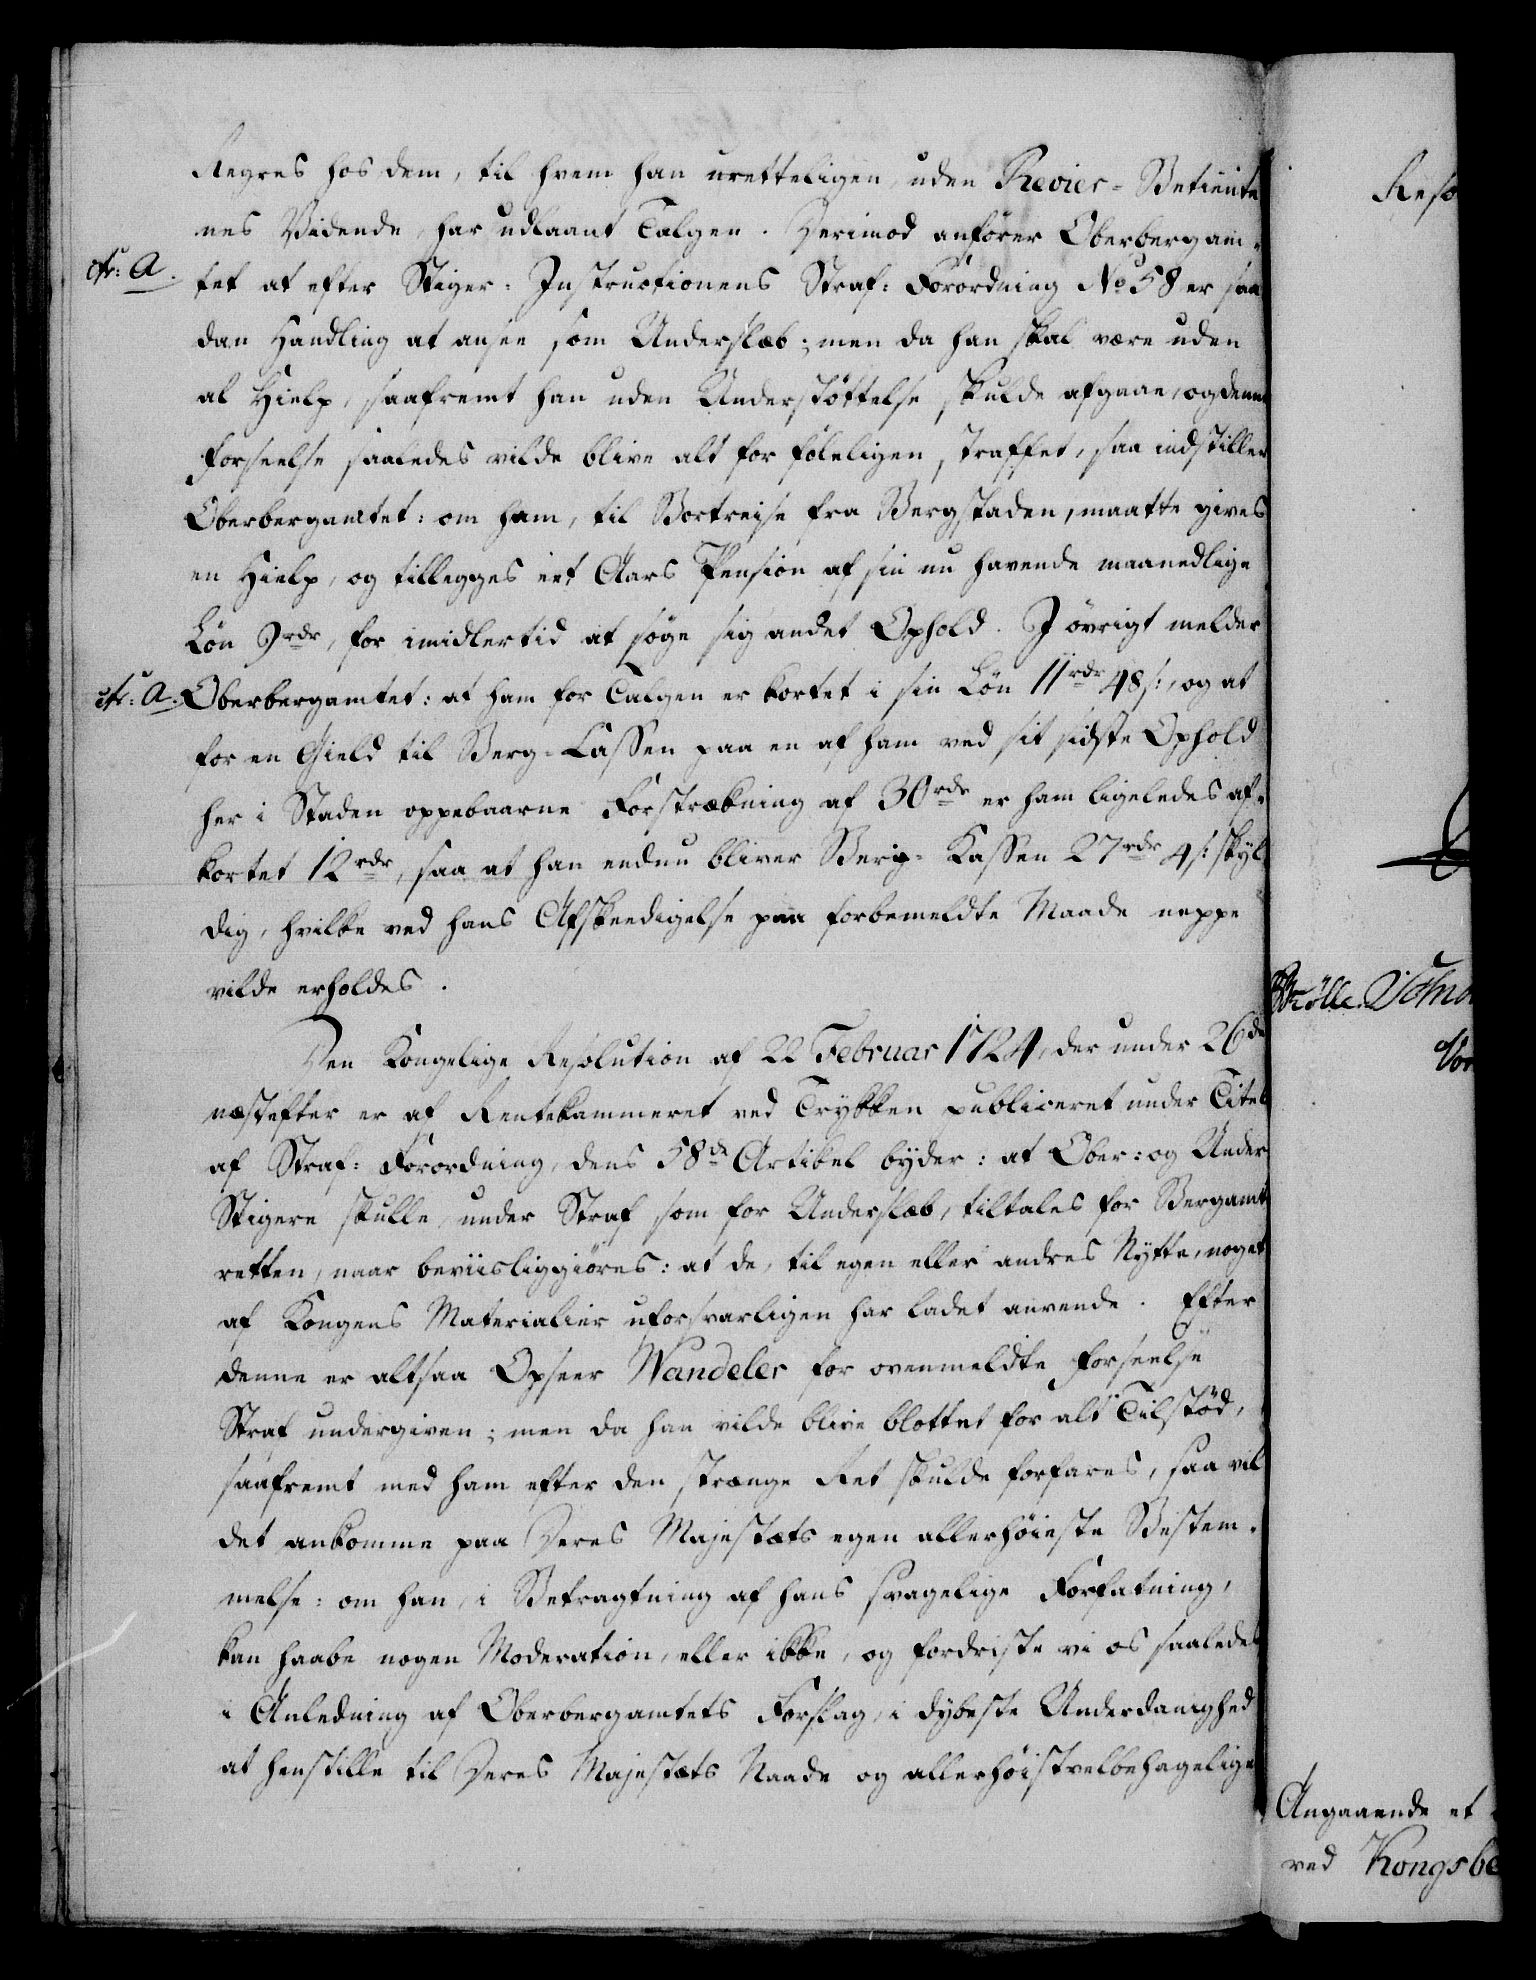 Regres hos dem, til hvem han uretteligen, uden Revier-Betiente
nes Vidende, har udlaant Talgen. Derimod anfører Oberbergam-
cfr: A.
tet at efter Stiger-Instructionens Straf-Forordning No 58 er saa
dan Handling at ansee som Underslæb; men da han skal være uden
al Hielp, saafremt han uden Understøttelse skulde afgaae, og denne
Forseelse saaledes vilde blive alt for føleligen straffet, saa indstiller
Oberbergamtet: om ham, til Bortreise fra Bergstaden, maatte gives
en Hielp, og tillegges eet Aars Pension af sin nu havende maanedlige
Løn 9 rdr, for imidlertid at søge sig andet Ophold. I øvrigt melder
cfr: A.
Oberbergamtet: at ham for Talgen er kortet i sin Løn 11 rdr 48 s:, og at
for en Gield til Berg-Cassen paa en af ham ved sit sidste Ophold
her i Staden oppebaarne Forstrækning af 30 rdr er ham ligeledes af-
kortet 12 rdr, saa at han endnu bliver Berg-Kassen 27 rdr 4 s: skyl
dig, hvilke ved hans Afskeedigelse paa forbemeldte Maade neppe
vilde erholdes.
Den Kongelige Resolution af 22 Februar 1724, der under 26de
næstefter er af Rentekammeret ved Trykken publiceret under Titel
af Straf-Forordning, dens 58de Artikel byder: at Ober- og Under
Stigere skulle, under Straf som for Underslæb, tiltales for Bergamts
retten, naar beviisliggiøres: at de, til egen eller andres Nytte, noget
af Kongens Materialier uforsvarligen har ladet anvende. Efter
denne er altsaa Opseer Wandeler for ovenmeldte Forseelse
Straf undergiven; men da han vilde blive blottet for alt Tilstød,
saafremt med ham efter den strænge Ret skulde forfares, saa vil
det ankomme paa Deres Majestæts egen allerhøieste Bestem-
melse: om han, i Betragtning af hans svagelige Forfatning,
kan haabe nogen Moderation, eller ikke, og fordriste vi os saaledes
i Anledning af Oberbergamtets Forslag, i dybeste Underdanighed
at henstille til Deres Majestæts Naade og allerhøistvelbehagelige
Reso
Angaaende et
ved Kongsbe